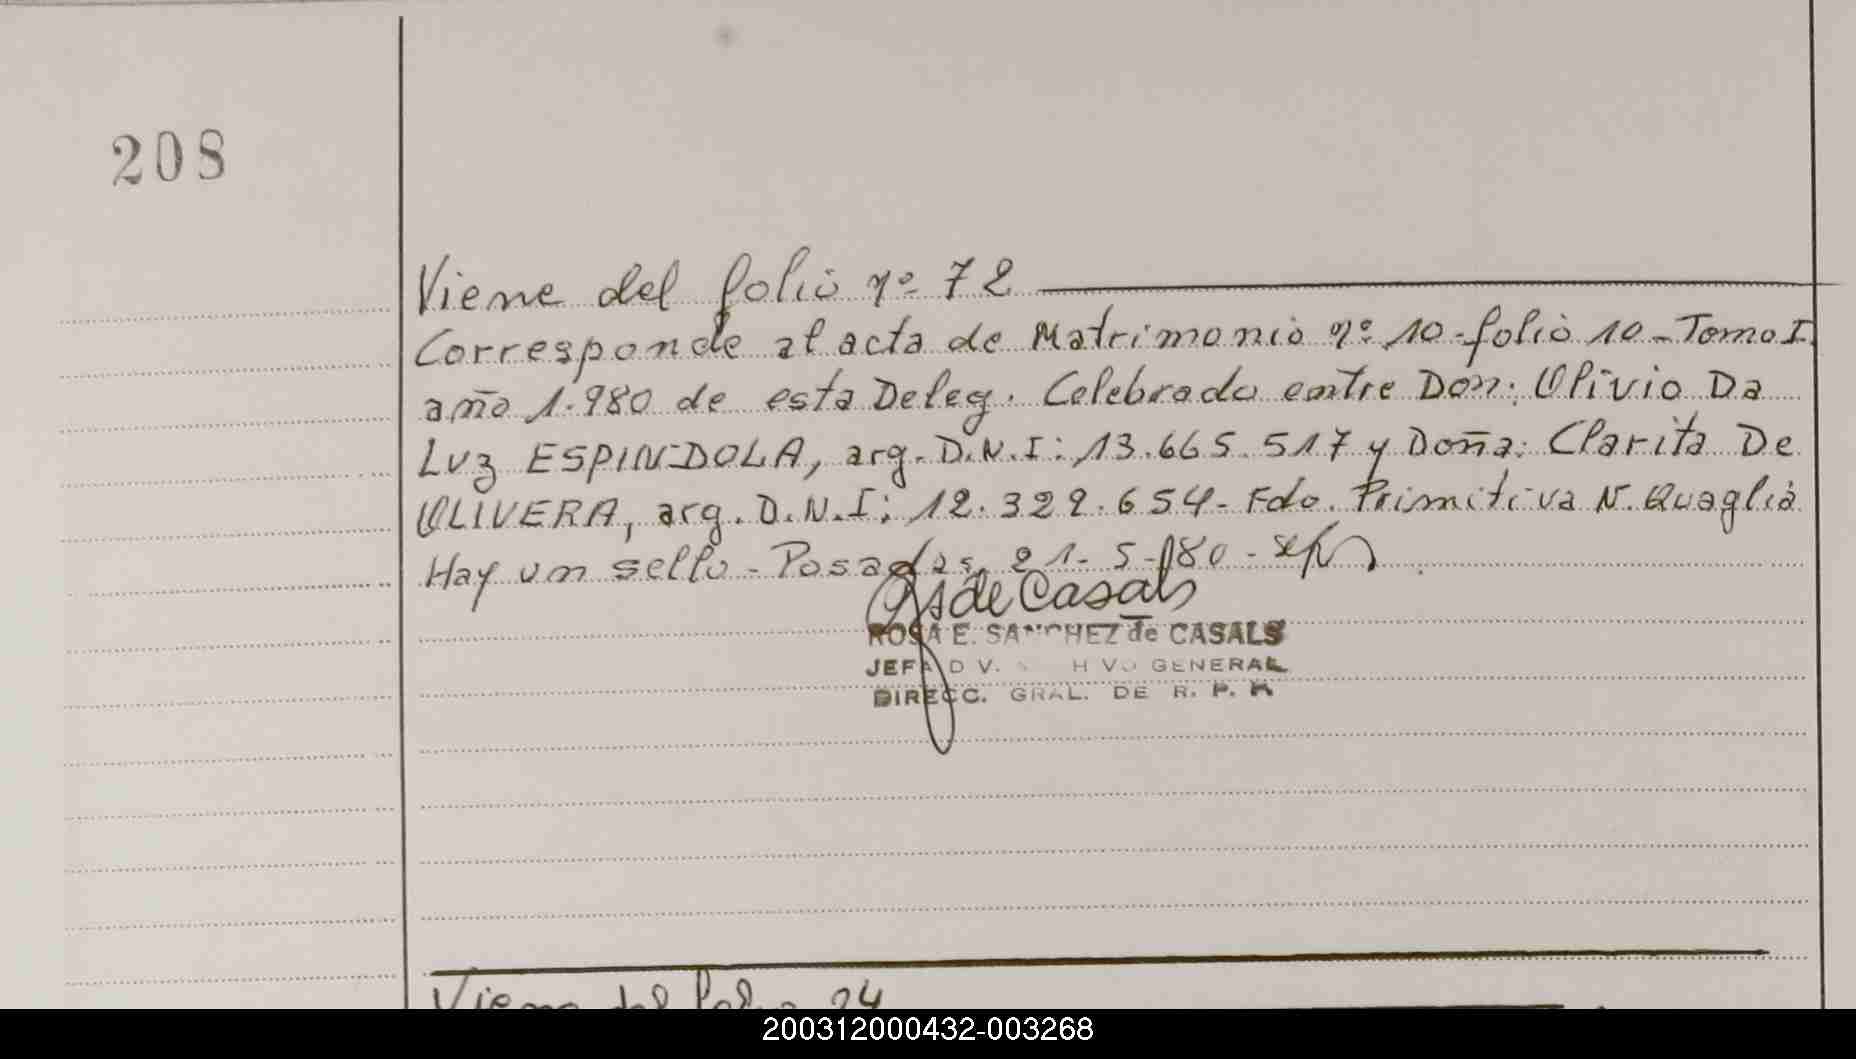 208
Viene del folio nº 72
Corresponde al acta de Matrimonio nº 10-folio 10-Tomo I.
año 1.980 de esta Deleg. Celebrado entre Don: Olivio Da
Luz ESPINDOLA, arg. D.N.I: 13.665.517 y Doña: Clarita De
OLIVERA, arg. D.N.I: 12.322.654- Fdo. Primitiva N. Quaglia
Hay un sello - Posadas, 21-5-80-
de Casals
ROSA E. SANCHEZ de CASALS
JEFA DIV. GENERAL
DIRECC. GRAL. DE R. P.
Viene del Folio 24
200312000432-003268